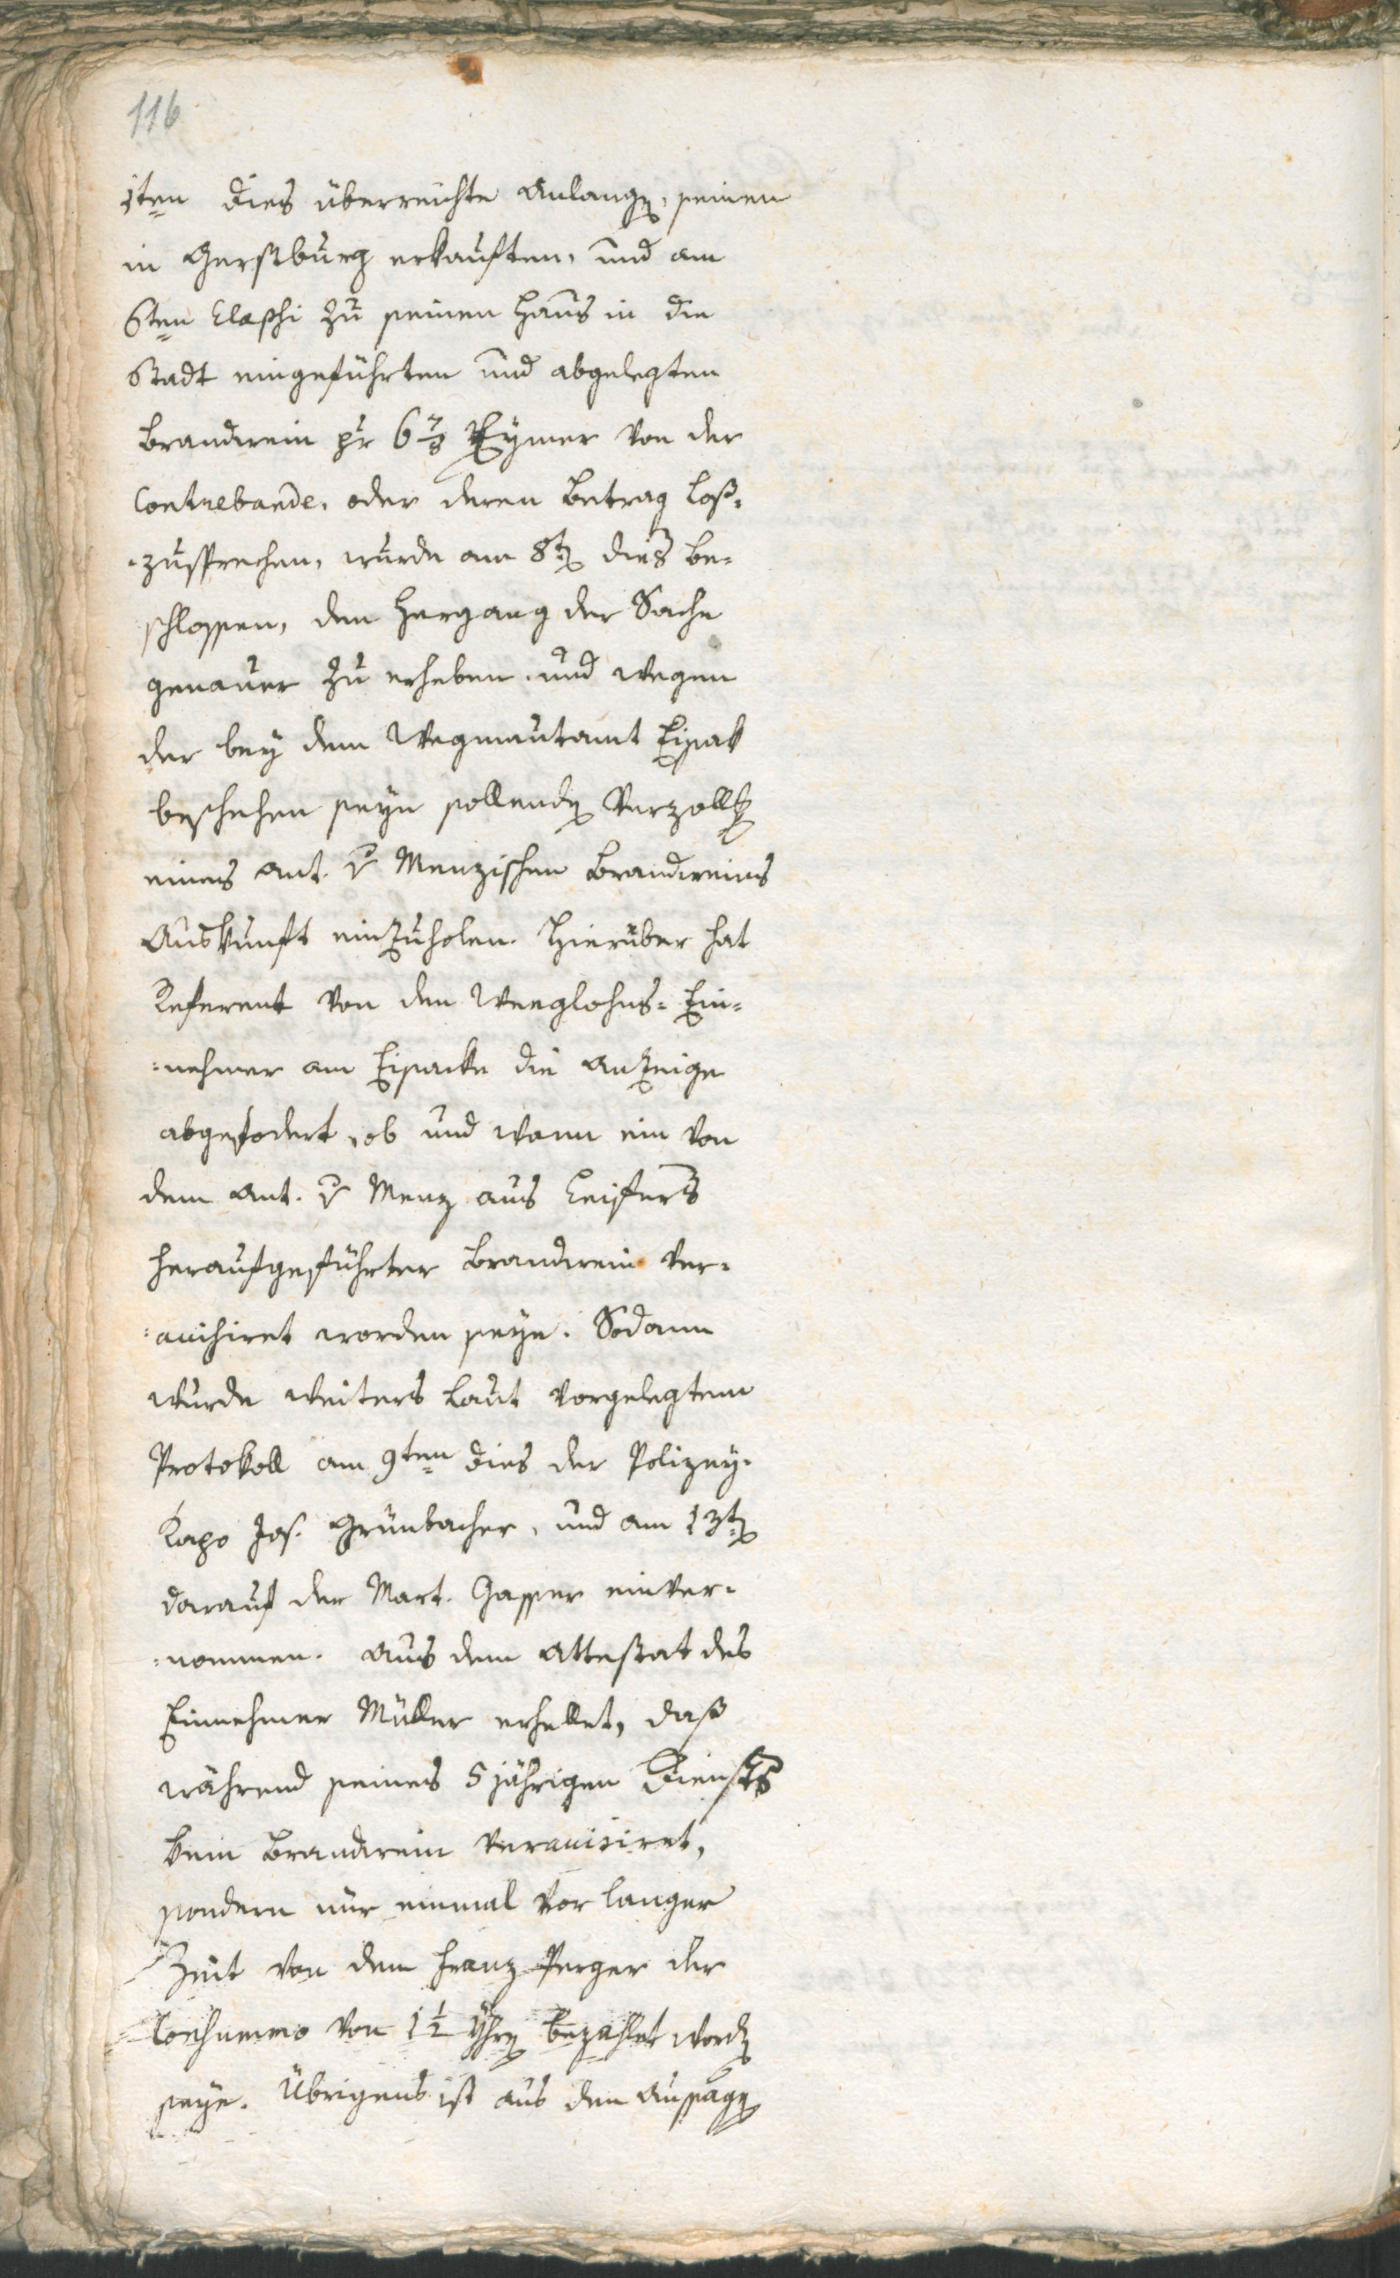 116
3ten dies überreichte Anlangen, seinen
in Gerstburg erkauften, und am
6ten elapsi zu seinen Haus in die
Stadt eingeführten und abgelegten
Brandwein pr 6 7/8 Eymer von der
Contrebande, oder deren Betrag loß-
-zusprechen, wurde am 8ten dies be-
schlossen, den Hergang der Sache
genauer zu erheben, und wegen
der bey dem Wegmautamt Eisak
beschehen seyn sollenden Verzollung
eines Ant. v Menzischen Brandweins
Auskunft einzuholen. Hierüber hat
Referent von den Weeglohns- Ein-
-nehmer am Eisacke die Anzeige
abgefodert, ob und wann ein von
dem Ant. v Menz aus Leifers
heraufgeführter Brandwein ver-
-accisiret worden seye. Sodann
wurde weiters laut vorgelegtem
Protokoll am 9ten dies der Polizey-
Capo Jos. Grünbacher, und am 13ten
darauf der Mart. Gasser einver-
-nommen. Aus dem Attestat des
Einnehmer Müller erhellet, daß
während seines 5 jährigen Diensts
kein Brandwein veraccisiret,
sondern nur einmal vor langer
Zeit von dem Franz Perger der
Consummo von 1 1/2 Yhrn bezahlet worden
seye. Übrigens ist aus den Aussagen